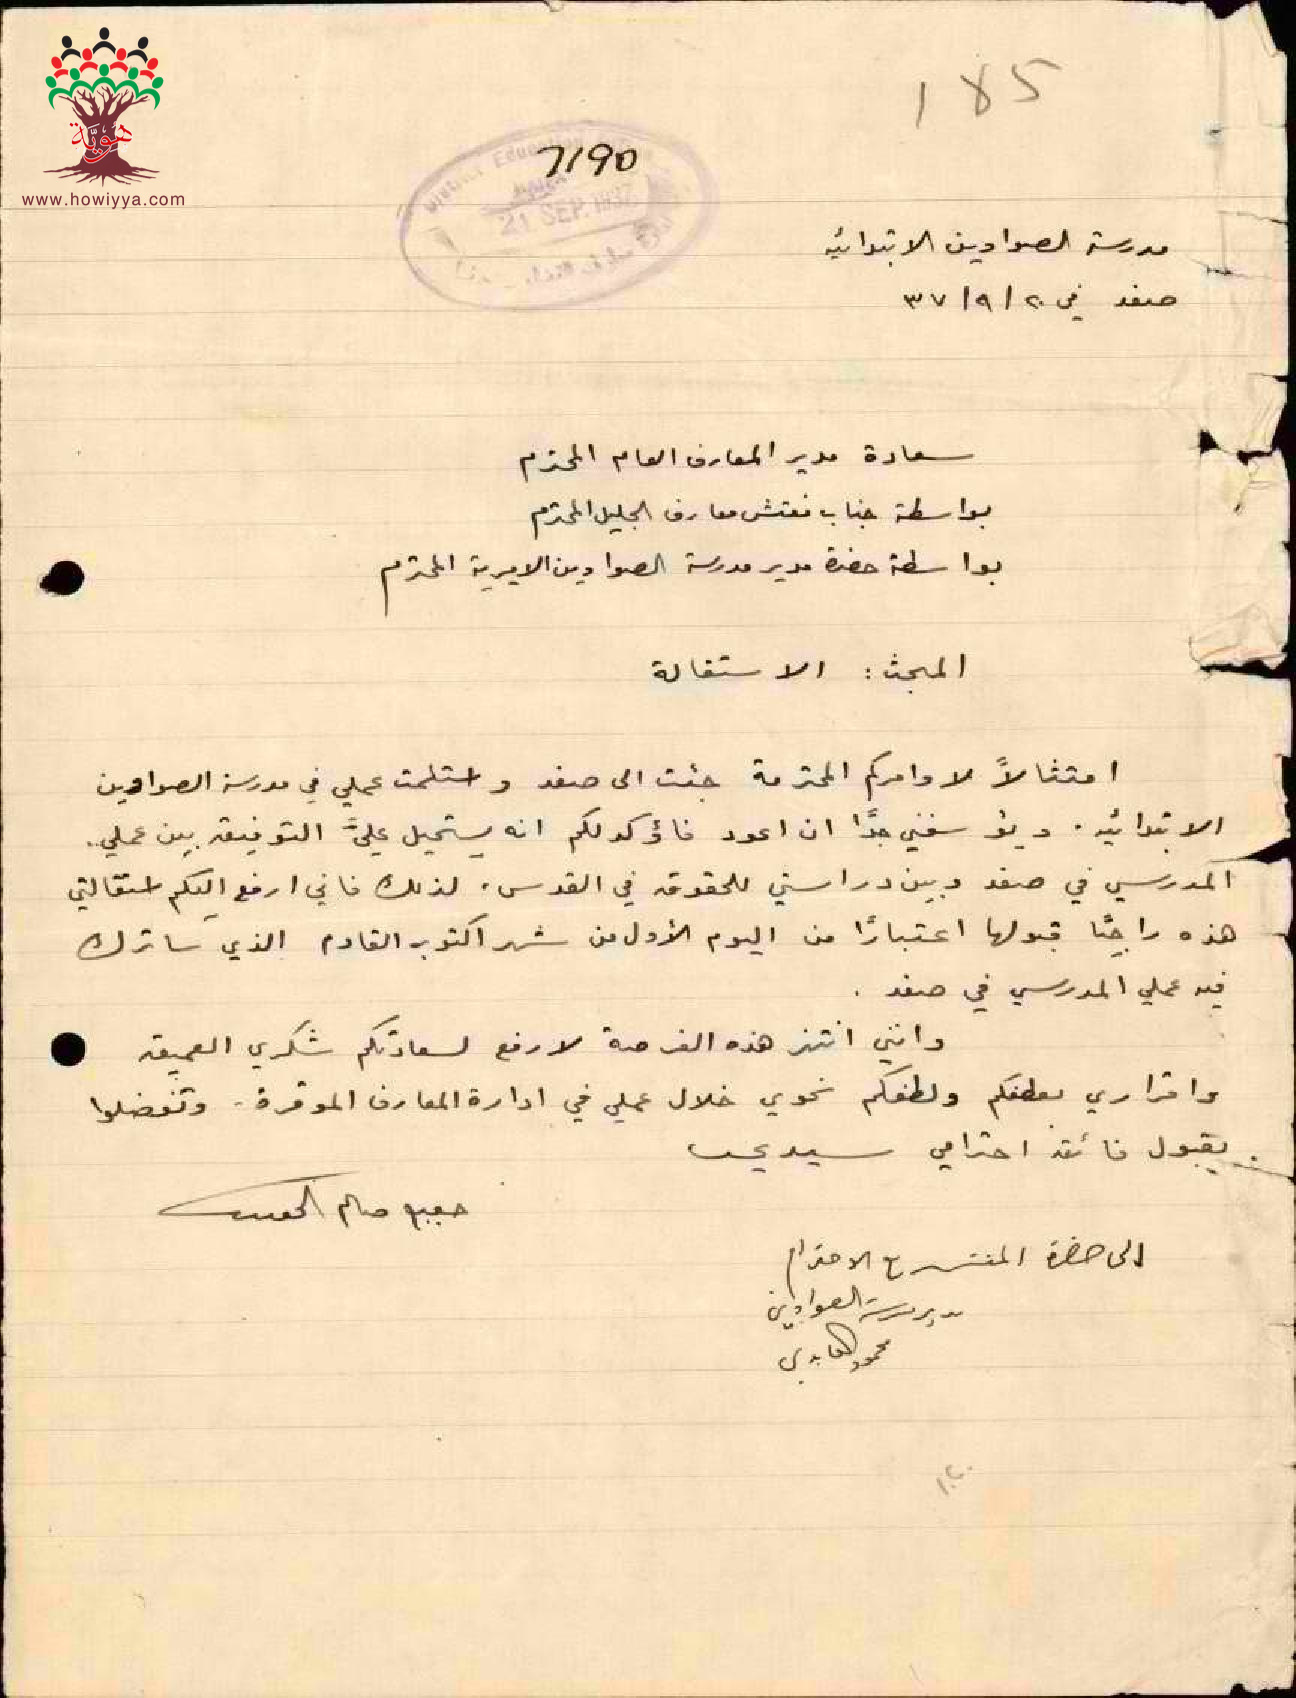 هوية
www.howiyya.com
185
7190
District Education
21 SEP. 1937
مدرسة الصوادين الابتدائيه
صفد في ٢٠ / ٩ / ٣٧
سعادة مدير المعارف العام المحترم
بواسطة جناب مفتش معارف الجليل المحترم
بواسطة حضرة مدير مدرسة الصوادين الاميرية المحترم
المبحث : الاستقالة
امتثالاً لاوامركم المحترمة جئت الى صفد واستلمت عملي في مدرسة الصوادين
الابتدائيه . ويؤسفني جدًّا ان اعود فاؤكد لكم انه يستحيل عليَّ التوفيق بين عملي
المدرسي في صفد وبين دراستي للحقوق في القدس . لذلك فاني ارفع اليكم استقالتي
هذه راجيًا قبولها اعتبارًا من اليوم الأول من شهر اكتوبر القادم الذي ساترك
فيه عملي المدرسي في صفد .
وانني انتهز هذه الفرصة لارفع لسعادتكم شكري العميق
واقراري بعطفكم ولطفكم نحوي خلال عملي في ادارة المعارف الموقرة . وتفضلوا
بقبول فائق احترامي سيدي
صالح
الى حضرة المفتش مع الاحترام
مدير مدرسة الصوادين
محمود العابدي